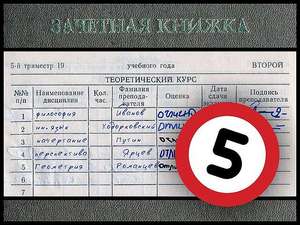 ЗАЧЕТНАЯ КНИЖКА
5-й триместр 19 учебного года ВТОРОЙ
ТЕОРЕТИЧЕСКИЙ КУРС
№№ п/п Наименование дисциплин Кол. час. Фамилия преподавателя Оценка Дата сдачи Подпись преподавателя
1 философия Иванов отлично
2 ин. язык Ходорковский отли
3 начертание Путин отл
4 перспектива Ярцев отл
5 Геометрия Романцев отли
6
7
5